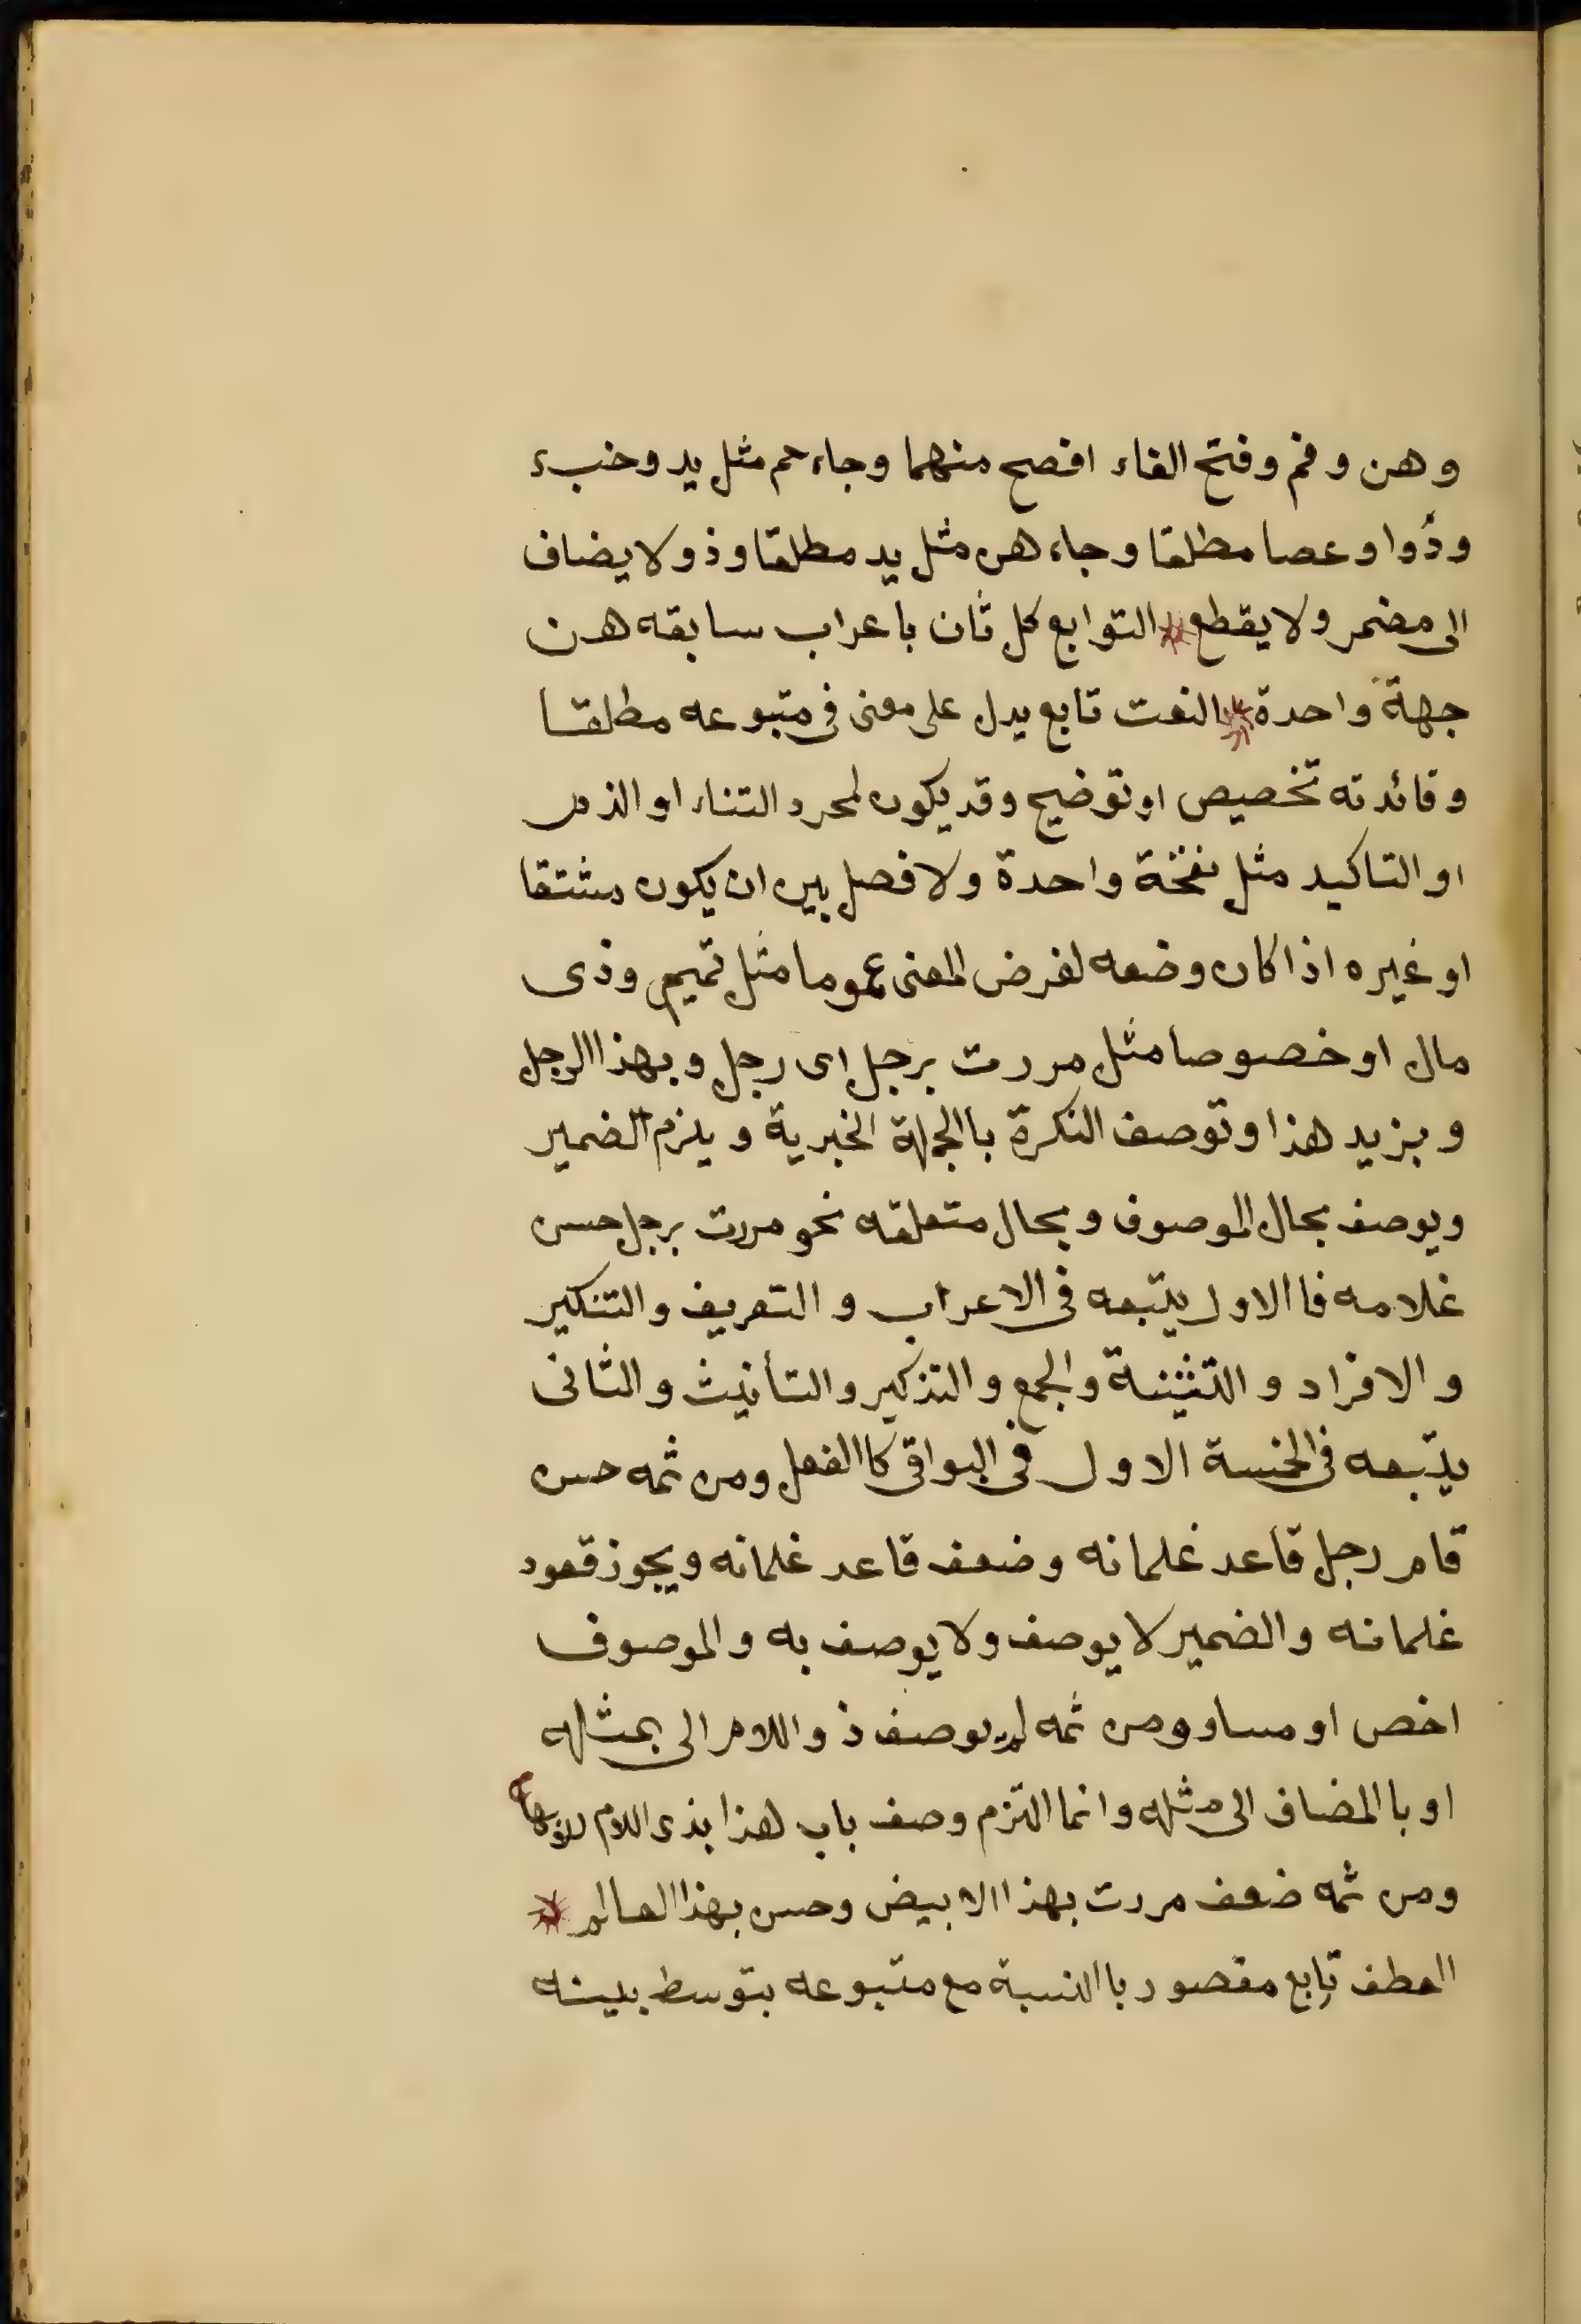 وهن وفم وفتح الفاء افصح منهما وجاء حم مثل يد وخبء
ودلوا وعصا مطلقا وجاء هن مثل يد مطلقا وذو لا يضاف
الى مضمر ولا يقطع التوابع كل ثان باعراب سابقه من
جهة واحدة النعت تابع يدل على معنى فى متبوعه مطلقا
وفائدته تخصيص او توضيح وقد يكون لمجرد الثناء او الذم
او التاكيد مثل نفخة واحدة ولا فصل بين ان يكون مشتقا
او غيره اذا كان وضعه لغرض المعنى عموما مثل تميم وذى
مال او خصوصا مثل مررت برجل اى رجل وبهذا الرجل
وبزيد هذا وتوصف النكرة باالجملة الخبرية ويلزم الضمير
ويوصف بحال الموصوف وبحال متعلقه نحو مررت برجل حسن
غلامه فاالاول يتبعه فى الاعراب والتعريف والتنكير
والافراد والتثنية والجمع والتذكير والتأنيث والثانى
يتبعه فى الخمسة الاول فى البواقى كاالفعل ومن ثمه حسن
قام رجل قاعد غلمانه وضعف قاعد غلمانه ويجوز قعود
غلمانه والضمير لا يوصف ولا يوصف به والموصوف
اخص او مساو ومن ثمه لم يوصف ذو اللام الى بمثله
او باالمضاف الى مثله وانما التزم وصف باب هذا بذى اللام للابهام
ومن ثمه ضعف مررت بهذا الابيض وحسن بهذا العالم
العطف تابع مقصود باالنسبة مع متبوعه بتوسط بينه